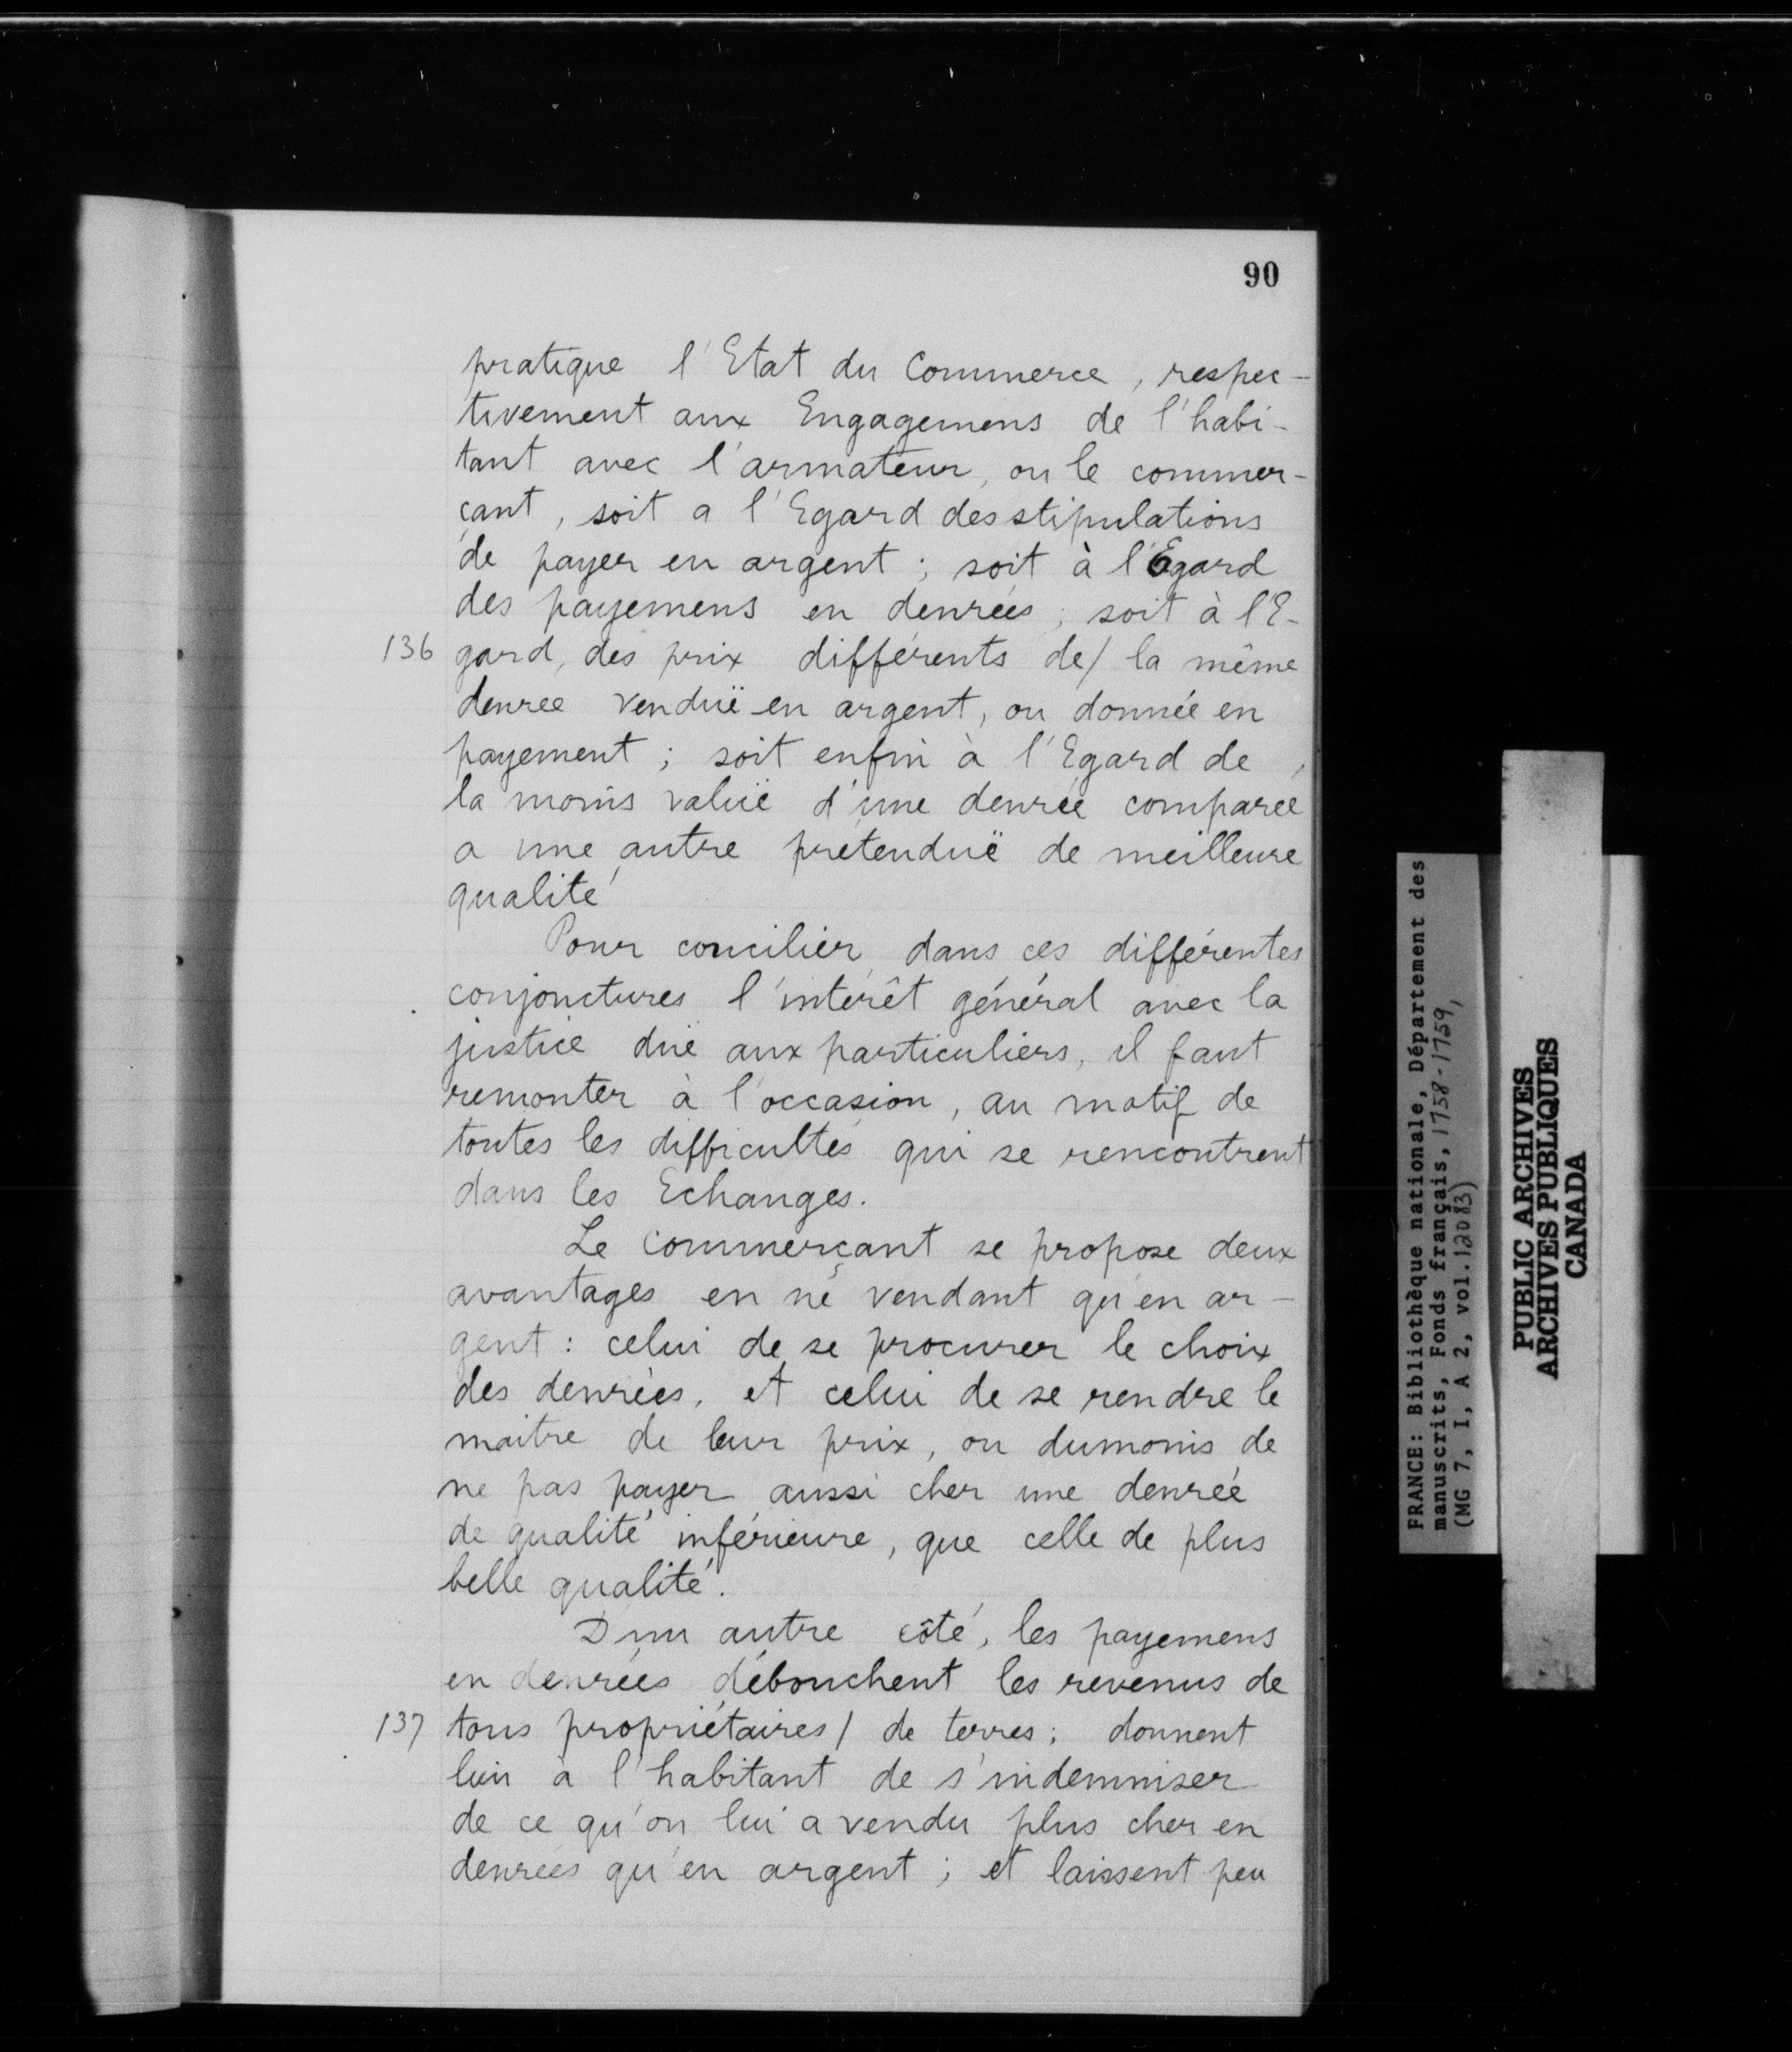 90
pratique l'Etat du Commerce, respec-
tivement aux Engagemens de l'habi-
tant avec l'armateur, ou le commer-
çant, soit a l'Egard des stipulations
de payer en argent; soit à l'Egard
des payemens en denrées; soit à l'E-
136 gard, des prix différents de/ la même
denree venduë en argent, ou donnée en
payement; soit enfin à l'Egard de
la moins valüe d'une denrée comparée
a une autre prétenduë de meilleure
qualité
Pour concilier dans ces différentes
conjonctures l'intérêt général avec la
justice düe aux particuliers, il faut
remonter à l'occasion, au motif de
toutes les difficultés qui se rencontrent
dans les Echanges.
Le commerçant se propose deux
avantages en ne vendant qu'en ar-
gent: celui de se procurer le choix
des denrées, et celui de se rendre le
maitre de leur prix, ou dumoins de
ne pas payer aussi cher une denrée
de qualité inférieure, que celle de plus
belle qualité.
D'un autre côté, les payemens
en denrées débouchent les revenus de
137 tous propriétaires/ de terres; donnent
lieu a l'habitant de s'indemniser
de ce qu'on lui a vendu plus cher en
denrées qu'en argent; et laissent peu
FRANCE: Bibliothèque nationale, Département des
manuscrits, Fonds français, 1758-1759,
(MG 7, I, A 2, vol. 12083)
PUBLIC ARCHIVES
ARCHIVES PUBLIQUES
CANADA